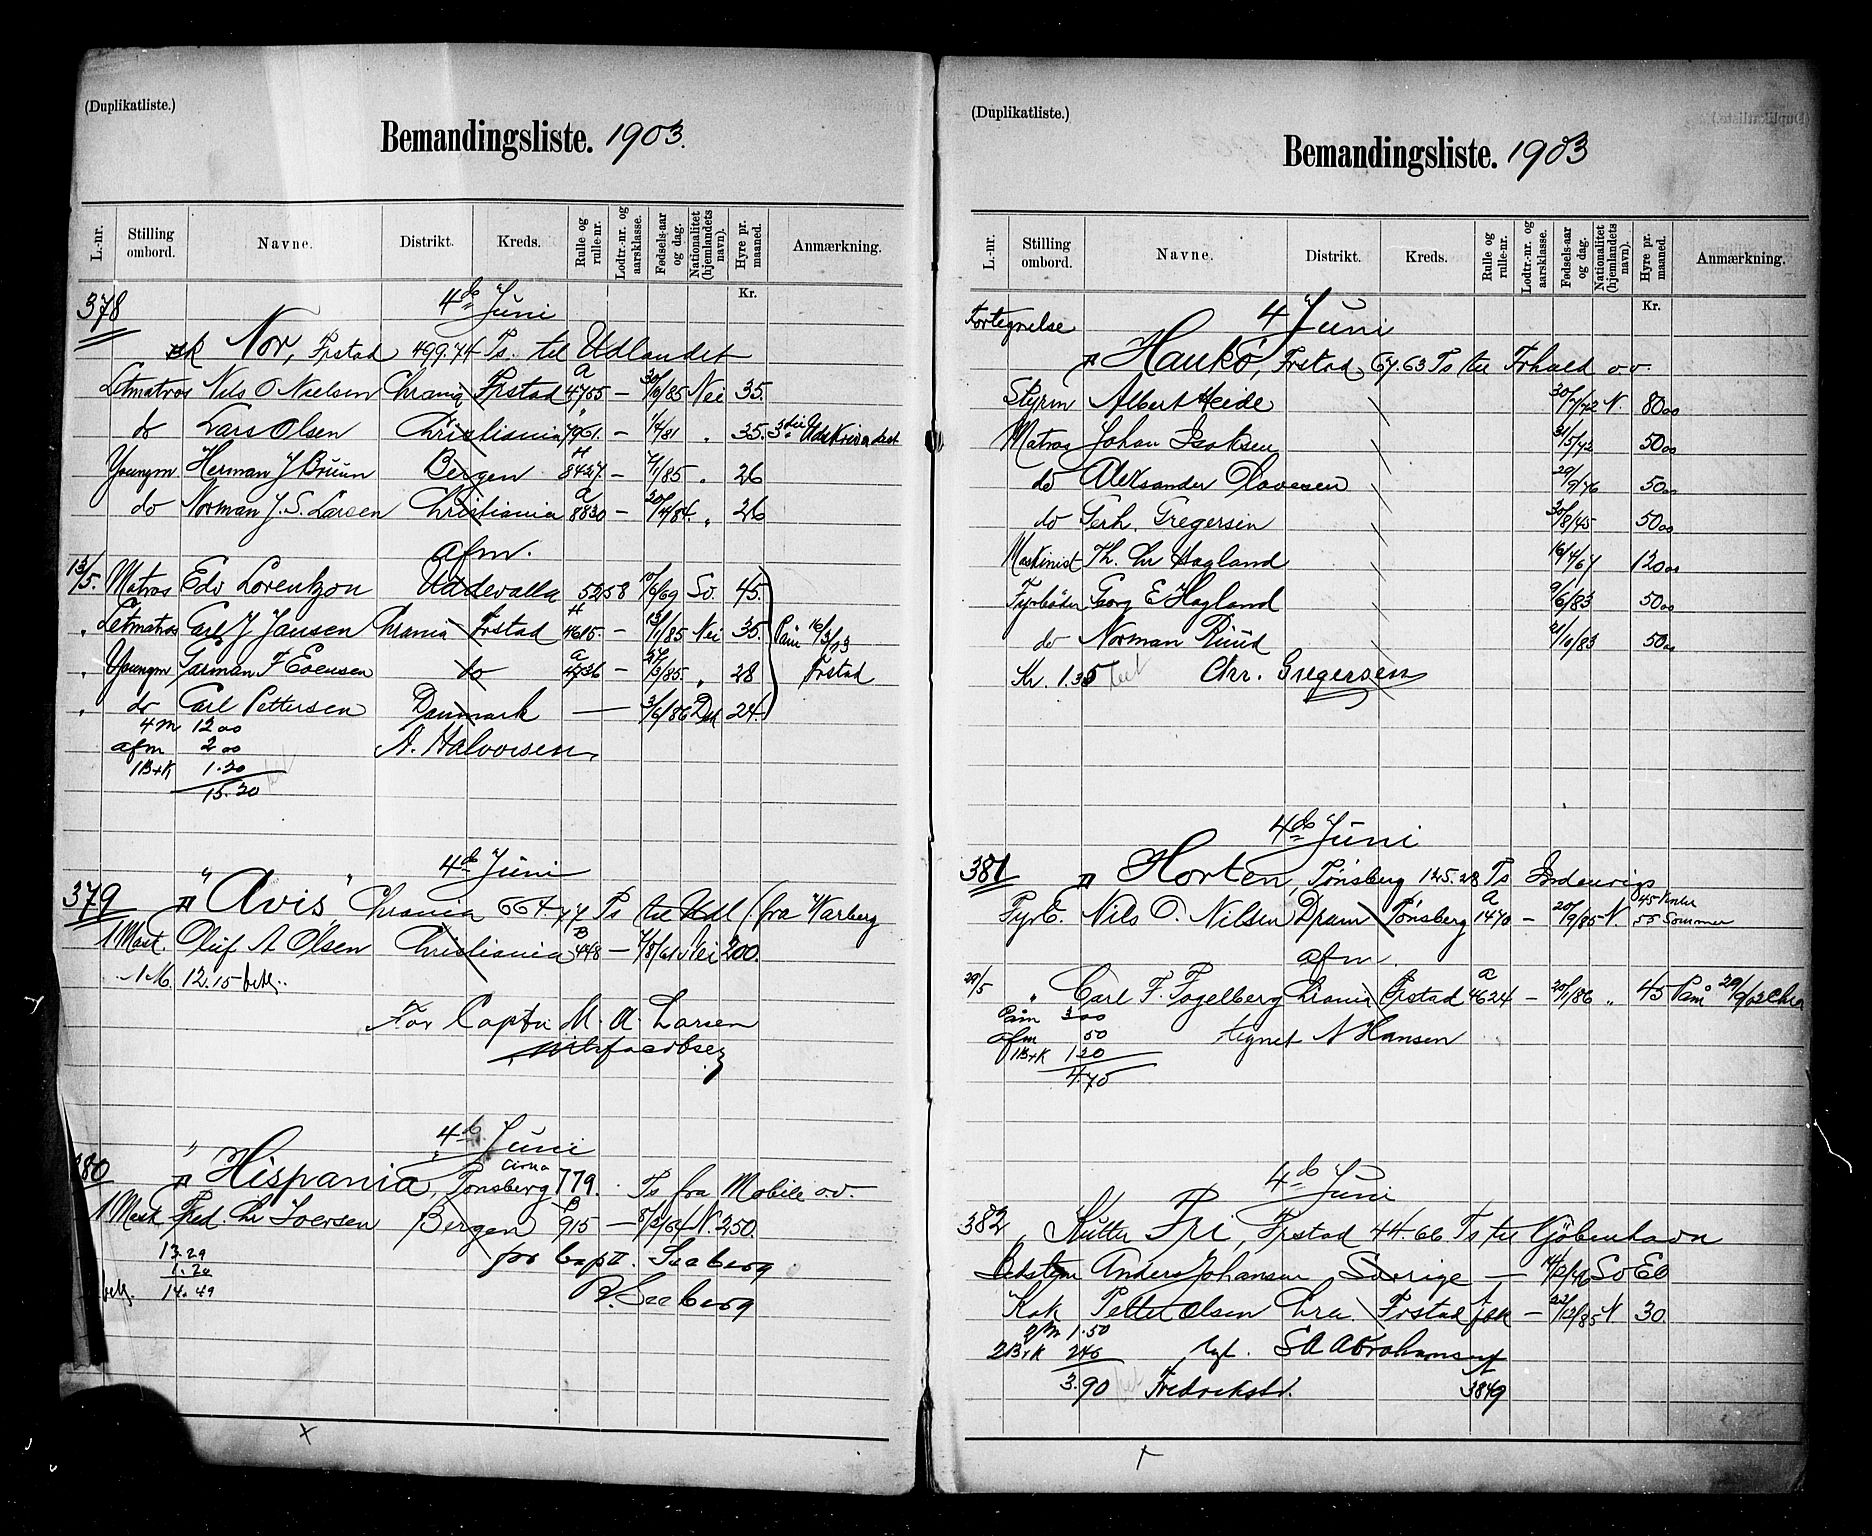 (Duplikatliste.)
Bemandingsliste. 1903.
L.-nr. Stilling ombord. Navne. Distrikt. Kreds. Rulle og rulle-nr. Lodtr.-nr. og aarsklasse. Fødsels-aar og dag. Nationalitet (hjemlandets navn). Hyre pr. maaned. Anmærkning.
Kr.
378 4de Juni
Sk Nor, Frstad 499.74 Ts. til Udlandet
Letmatros Nils O Nielsen Chrania Frstad a 4755 — 30/9/85 Nei 35.
do Lars Olsen Christiania 7961. — 1/4/81 " 35.
Youngm. Herman J Bruun Bergen H 8427 — 7/1/85 " 26
do Norman J. S. Larsen Christiania a 8830 — 20/12/84. " 26
afm.
13/5. Matros Edv Lorentzon Uddevalla 5258 10/6/69 Sv. 45.
" Letmatros Carl J Jansen Chrania Frstad H 4615. — 13/1/85 Nei 35. Paam 16/3/03
" Youngm Garman F Evensen do a 4736 — 27/3/85. " 28 Frstad
" do Carl Pettersen Danmark — 3/6/86 Dk 24.
4 m 12 00
afm 2 00 A. Halvorsen
1B+K 1.20
15.20
4de Juni
379 "Avis" Chrania 664.47 Ts til Udl (fra Warberg
1 Mask. Oluf A Olsen Christiania B 448 — 7/8/61 Nei 200.
1 M. 12.15 betl.
For Captn M. A. Larsen
4de Juni
380 "Hispania, Tønsberg cirka 779. Ts fra Mobile o.v.
1 Mask Fred. Chr Iversen Bergen B 915 — 8/3/64 N. 250.
13.29 for Capt. Seeberg
1.20
betl. 14.49 V. Seeberg
(Duplikatliste.)
Bemandingsliste. 1903
L.-nr. Stilling ombord. Navne. Distrikt. Kreds. Rulle og rulle-nr. Lodtr.-nr. og aarsklasse. Fødsels-aar og dag. Nationalitet (hjemlandets navn). Hyre pr. maaned. Anmærkning.
Kr.
Fortegnelse 4 Juni
Hankø, Frstad, 67.63 Ts til Frhald o.v.
Styrm Albert Heide 30/7/72 N. 80 00
Matros Johan Isaksen 31/5/42 50 00
do Aleksander Olavesen 29/9/76 50 00
do Gerh. Gregersen 30/8/45 50 00
Maskinist Th. Chr Hagland 16/4/67 120 00
Fyrbøder Georg E Hagland 9/6/83 50 00
do Norman Ruud 21/10/83 50 00
Kr. 1.35 Chr. Gregersen
4de Juni
381 Horten, Tønsberg 125.28 Ts Indenrigs
Fyrb. Nils O. Nilsen Dram Tønsberg a 1470 — 20/9/85 N. 45 Vinter 55 Sommer
afm.
29/5 " Carl F. Fogelberg Chrania Frstad a 4624 — 20/1/86 " 45 Paam 29/9/02 Chra
Paam 3 00
afm 50 tegnet N Hansen
1B+K 1 20
4.70
4de Juni
382 Kutter Fri, Frstad 44.66 Ts til Kjøbenhavn
Anders Johansen Sverige — 14/12/46 Sv 60
Kok Petter Olsen Chra. Frstad — 22/12/85 N. 30.
2/m 1.50
2B+K 2 40 tegn. S A Abrahamsen
3.90 Fredrikstd. 3849